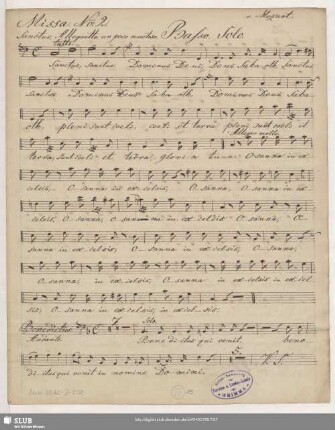 Missa No 2.
Mozart.
Sanctus. Allegretto un poco
Basso Solo.
Tutti
Sanctus, Sanctus Dominus Deus, Deus Sabaoth, Sanctus
Sanctus Dominus Deus Sabaoth. Dominus Deus Saba-
oth, pleni sunt coeli, coeli et terra pleni sunt coeli et
Allegro molto
terra, sunt coeli et terra, gloria tua. O-sanna in ex
celsis, O-sanna in ex celsis, O-sanna, O-sanna in ex
celsis, O-sanna, O-sanna in ex celsis O-sanna, O-
sanna in ex celsis, O-sanna in ex celsis, O-sanna,
O-sanna, in ex celsis, O-sanna in ex celsis in ex cel
sis, O-sanna in ex celsis, in ex cel-sis.
Benedictus
7.
Solo
Andante
Benedictus qui venit, bene
5.
dictus qui venit in nomine Domini.
V. S.
SLUB